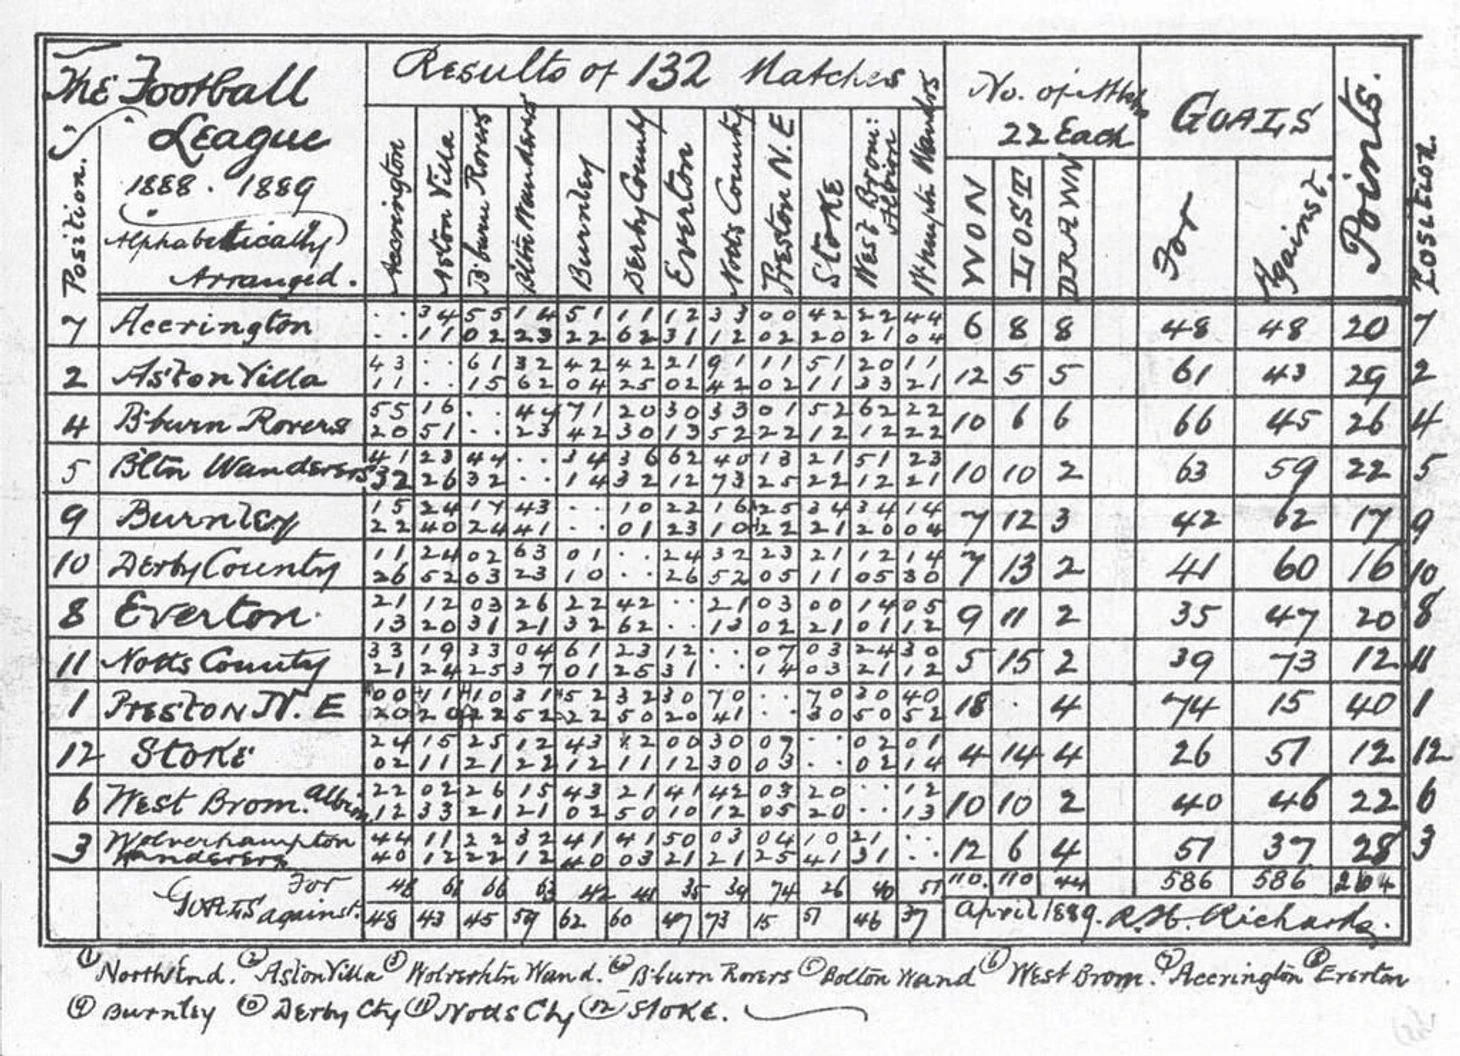 The Football League 1888 . 1889 Alphabetically Arranged.
Results of 132 Matches
No. of Matches 22 Each
GOALS
Points.
Position.
Position.
Accrington
Aston Villa
B'burn Rovers
Bltn Wanderers
Burnley
Derby County
Everton
Notts County
Preston N. E
Stoke
West Brom: Albion
W'hmptn Wandrs
WON
LOST
DRAWN
For
Against.
7 Accrington . . 34 55 14 51 11 12 33 00 42 22 44 6 8 8 48 48 20 7
. . 11 02 23 22 62 31 12 02 20 21 04
2 Aston Villa 43 . . 61 32 42 42 21 91 11 51 20 11 12 5 5 61 43 29 2
11 . . 15 62 04 25 02 42 02 11 33 21
4 B'burn Rovers 55 16 . . 44 71 20 30 33 01 52 62 22 10 6 6 66 45 26 4
20 51 . . 23 42 30 13 52 22 12 12 22
5 Bltn Wanderers 41 23 44 . . 34 36 62 40 13 21 51 23 10 10 2 63 59 22 5
32 26 32 . . 14 32 12 73 25 22 12 21
9 Burnley 15 24 17 43 . . 10 22 16 25 34 34 14 7 12 3 42 62 17 9
22 40 24 41 . . 01 23 10 22 21 20 04
10 Derby County 11 24 02 63 01 . . 24 32 23 21 12 14 7 13 2 41 60 16 10
26 52 03 23 10 . . 26 52 05 11 05 30
8 Everton 21 12 03 26 22 42 . . 21 03 00 14 05 9 11 2 35 47 20 8
13 20 31 21 32 62 . . 13 02 21 01 12
11 Notts County 33 19 33 04 61 23 12 . . 07 03 24 30 5 15 2 39 73 12 11
21 24 25 37 01 25 31 . . 14 03 21 12
1 Preston N. E 00 11 10 31 52 32 30 70 . . 70 30 40 18 . 4 74 15 40 1
20 20 22 52 22 50 20 41 . . 30 50 52
12 Stoke 24 15 25 12 43 12 00 30 07 . . 02 01 4 14 4 26 51 12 12
02 11 21 22 12 11 12 30 03 . . 02 14
6 West Brom. Albion 22 02 26 15 43 21 41 42 03 20 . . 12 10 10 2 40 46 22 6
12 33 21 21 02 50 10 12 05 20 . . 13
3 Wolverhampton Wanderers 44 11 22 32 41 41 50 03 04 10 21 . . 12 6 4 51 37 28 3
40 12 22 12 40 03 21 21 25 41 31 . .
Goals For 48 61 66 63 42 41 35 39 74 26 40 51 110. 110 44 586 586 264
against. 48 43 45 59 62 60 47 73 15 51 46 37 April 1889. R. H. Richards.
① North End. ② Aston Villa ③ Wolverhtn Wand. ④ B'burn Rovers ⑤ Bolton Wand ⑥ West Brom. ⑦ Accrington ⑧ Everton
⑨ Burnley ⑩ Derby Cty ⑪ Notts Cty ⑫ Stoke.